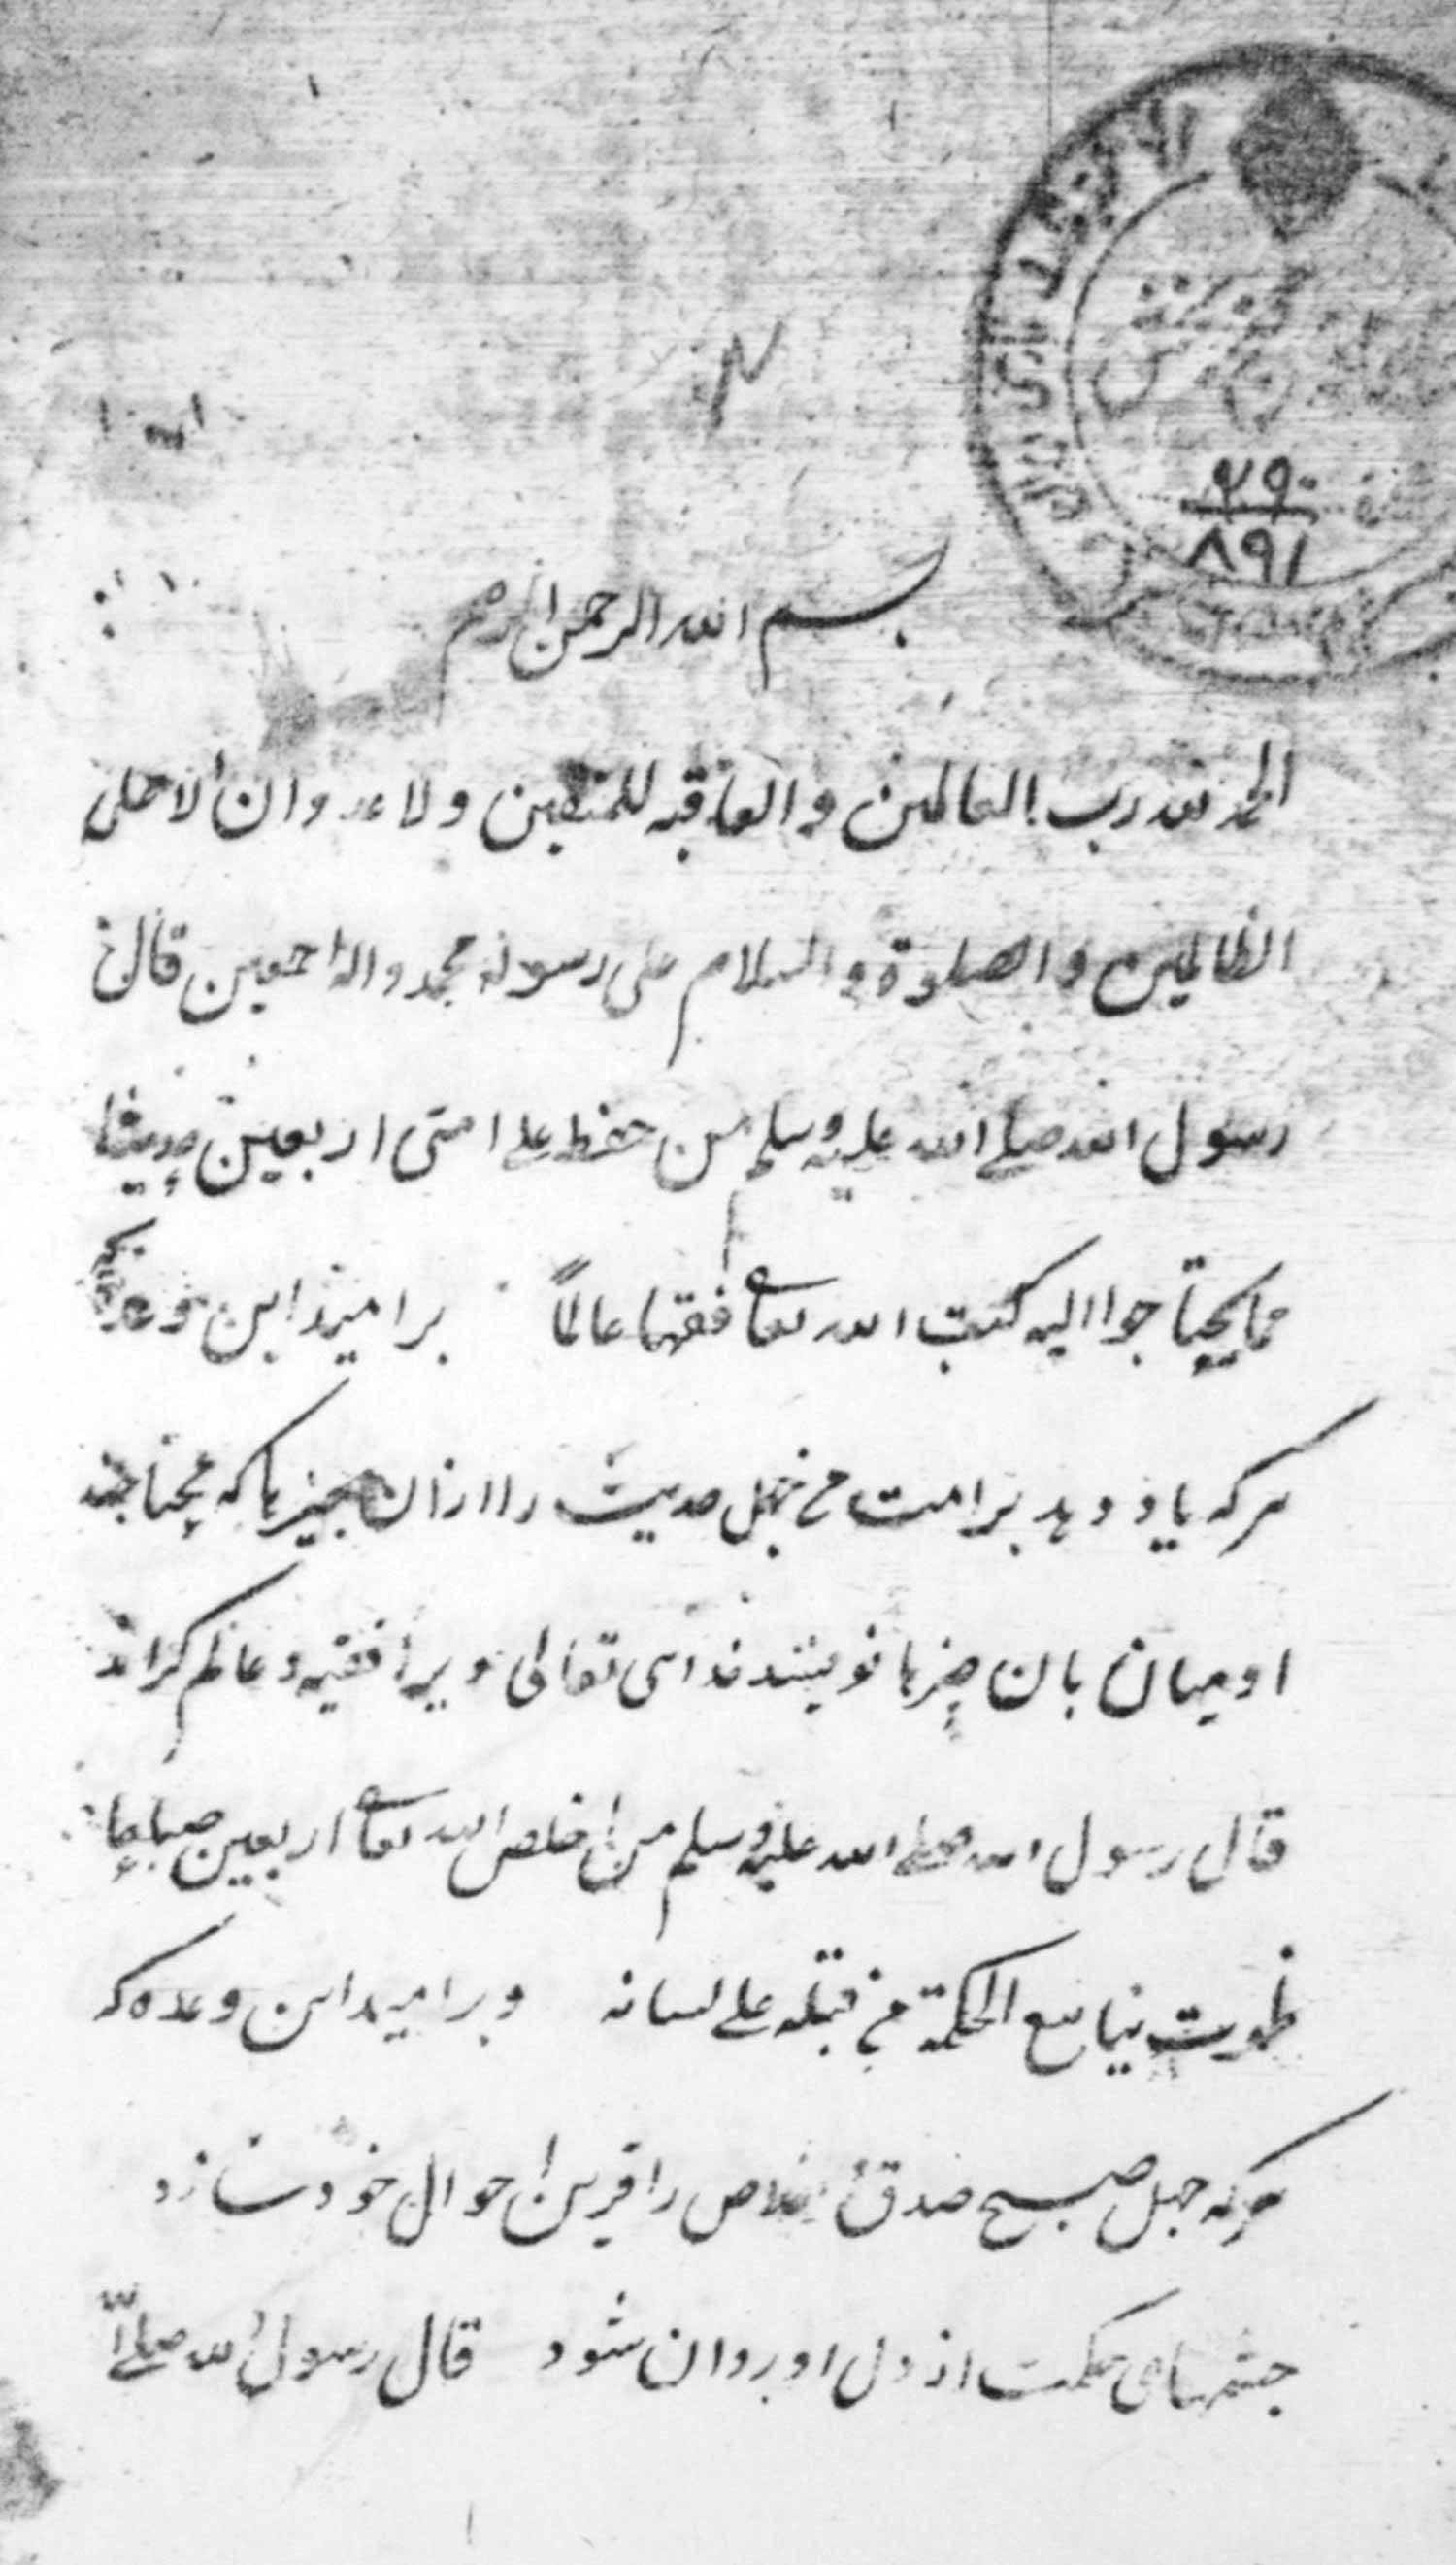 ۷۹۰
۸۹۱
بسم الله الرحمن الرحيم
الحمد لله رب العالمين و العاقبه للمتقين ولا عدوان الا على
الظالمين و الصلوة و السلام على رسوله محمد و اله اجمعين قال
رسول الله صلى الله عليه وسلم من حفظ على امتى اربعين حديثا
مما يحتاجوا اليه كتب الله تعالى فقيها عالماً بر اميد اين وعده كه
هر كه ياد دهد بر امت من چهل حديث را از ان چيزها كه محتاج شد
اوميان بان چيزها نويسند خداى تعالى ويرا فقيه و عالم گرداند
قال رسول الله صلى الله عليه وسلم من اخلص الله تعالى اربعين صباحا
ظهرت ينابيع الحكمة من قلبه على لسانه و بر اميد اين وعده كه
هركه چهل صبح صدق اخلاص را قرين احوال خود سازد
چشمهاى حكمت از دل او روان شود قال رسول الله صلى الله